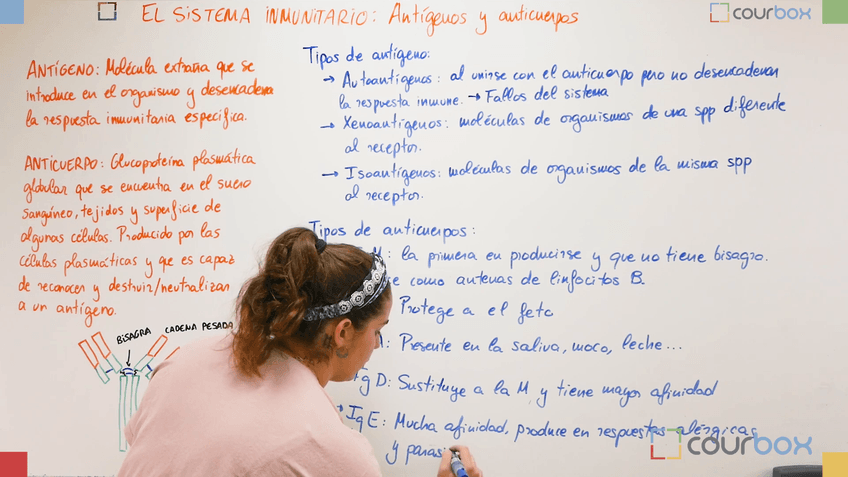 EL SISTEMA INMUNITARIO: Antígenos y anticuerpos
courbox
ANTÍGENO: Molécula extraña que se
introduce en el organismo y desencadena
la respuesta inmunitaria específica.
ANTICUERPO: Glucoproteína plasmática
globular que se encuentra en el suero
sanguíneo, tejidos y superficie de
algunas células. Producido por las
células plasmáticas y que es capaz
de reconocer y destruir/neutralizar
a un antígeno.
BISAGRA
CADENA PESADA
Tipos de antígeno:
→ Autoantígenos: al unirse con el anticuerpo pero no desencadenan
la respuesta inmune. → Fallos del sistema
→ Xenoantígenos: moléculas de organismos de una spp diferente
al receptor.
→ Isoantígenos: moléculas de organismos de la misma spp
al receptor.
Tipos de anticuerpos:
M: la primera en producirse y que no tiene bisagra.
como antenas de linfocitos B.
Protege a el feto
Presente en la saliva, moco, leche...
Ig D: Sustituye a la M y tiene mayor afinidad
Ig E: Mucha afinidad, produce en respuestas alérgicas
y paras
courbox